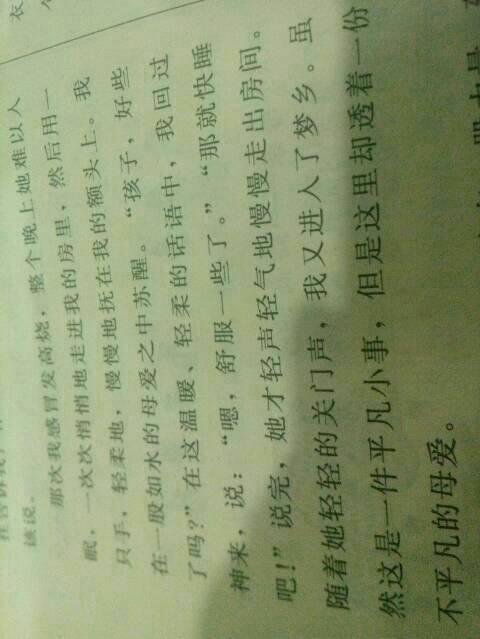 诶说。
那次我感冒发高烧，整个晚上她难以入
眠，一次次悄悄地走进我的房里，然后用一
只手，轻柔地，慢慢地抚在我的额头上。我
在一股如水的母爱之中苏醒。“孩子，好些
了吗？”在这温暖、轻柔的话语中，我回过
神来，说：“嗯，舒服一些了。”“那就快睡
吧！”说完，她才轻声轻气地慢慢走出房间。
随着她轻轻的关门声，我又进入了梦乡。虽
然这是一件平凡小事，但是这里却透着一份
不平凡的母爱。